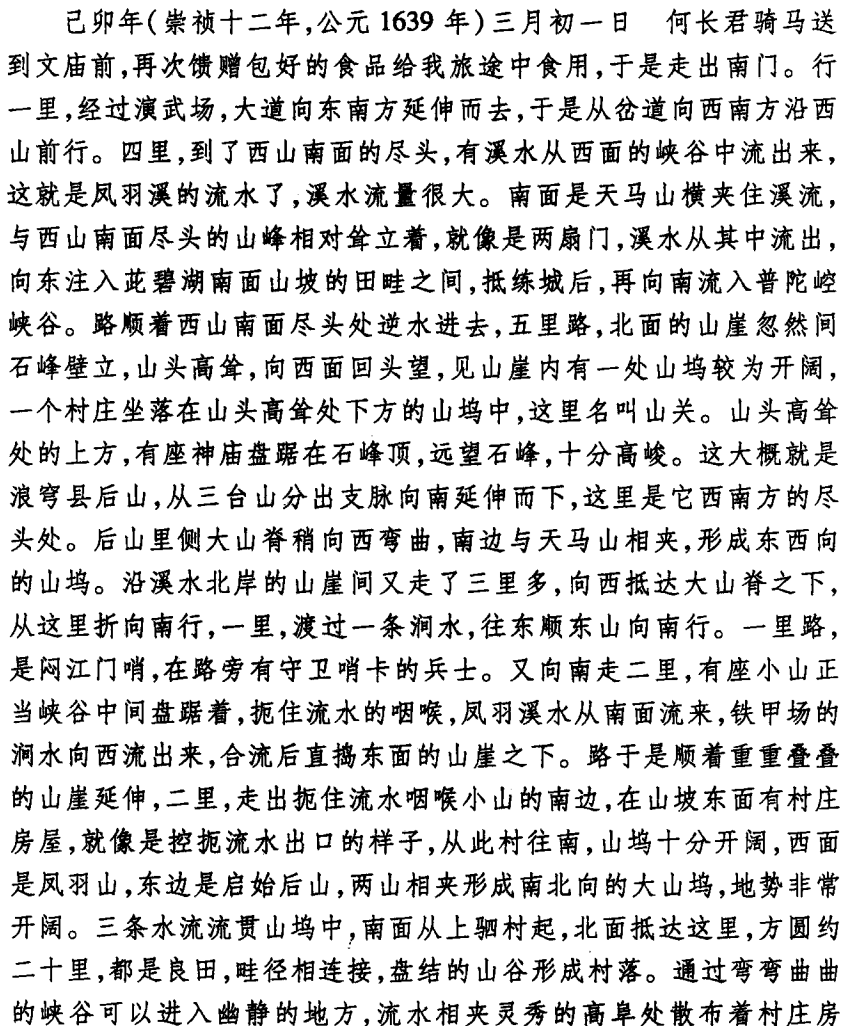 己卯年(崇祯十二年,公元 1639 年)三月初一日　何长君骑马送
到文庙前,再次馈赠包好的食品给我旅途中食用,于是走出南门。行
一里,经过演武场,大道向东南方延伸而去,于是从岔道向西南方沿西
山前行。四里,到了西山南面的尽头,有溪水从西面的峡谷中流出来,
这就是凤羽溪的流水了,溪水流量很大。南面是天马山横夹住溪流,
与西山南面尽头的山峰相对耸立着,就像是两扇门,溪水从其中流出,
向东注入茈碧湖南面山坡的田畦之间,抵练城后,再向南流入普陀崆
峡谷。路顺着西山南面尽头处逆水进去,五里路,北面的山崖忽然间
石峰壁立,山头高耸,向西面回头望,见山崖内有一处山坞较为开阔,
一个村庄坐落在山头高耸处下方的山坞中,这里名叫山关。山头高耸
处的上方,有座神庙盘踞在石峰顶,远望石峰,十分高峻。这大概就是
浪穹县后山,从三台山分出支脉向南延伸而下,这里是它西南方的尽
头处。后山里侧大山脊稍向西弯曲,南边与天马山相夹,形成东西向
的山坞。沿溪水北岸的山崖间又走了三里多,向西抵达大山脊之下,
从这里折向南行,一里,渡过一条涧水,往东顺东山向南行。一里路,
是闷江门哨,在路旁有守卫哨卡的兵士。又向南走二里,有座小山正
当峡谷中间盘踞着,扼住流水的咽喉,凤羽溪水从南面流来,铁甲场的
涧水向西流出来,合流后直捣东面的山崖之下。路于是顺着重重叠叠
的山崖延伸,二里,走出扼住流水咽喉小山的南边,在山坡东面有村庄
房屋,就像是控扼流水出口的样子,从此村往南,山坞十分开阔,西面
是凤羽山,东边是启始后山,两山相夹形成南北向的大山坞,地势非常
开阔。三条水流流贯山坞中,南面从上驷村起,北面抵达这里,方圆约
二十里,都是良田,畦径相连接,盘结的山谷形成村落。通过弯弯曲曲
的峡谷可以进入幽静的地方,流水相夹灵秀的高阜处散布着村庄房